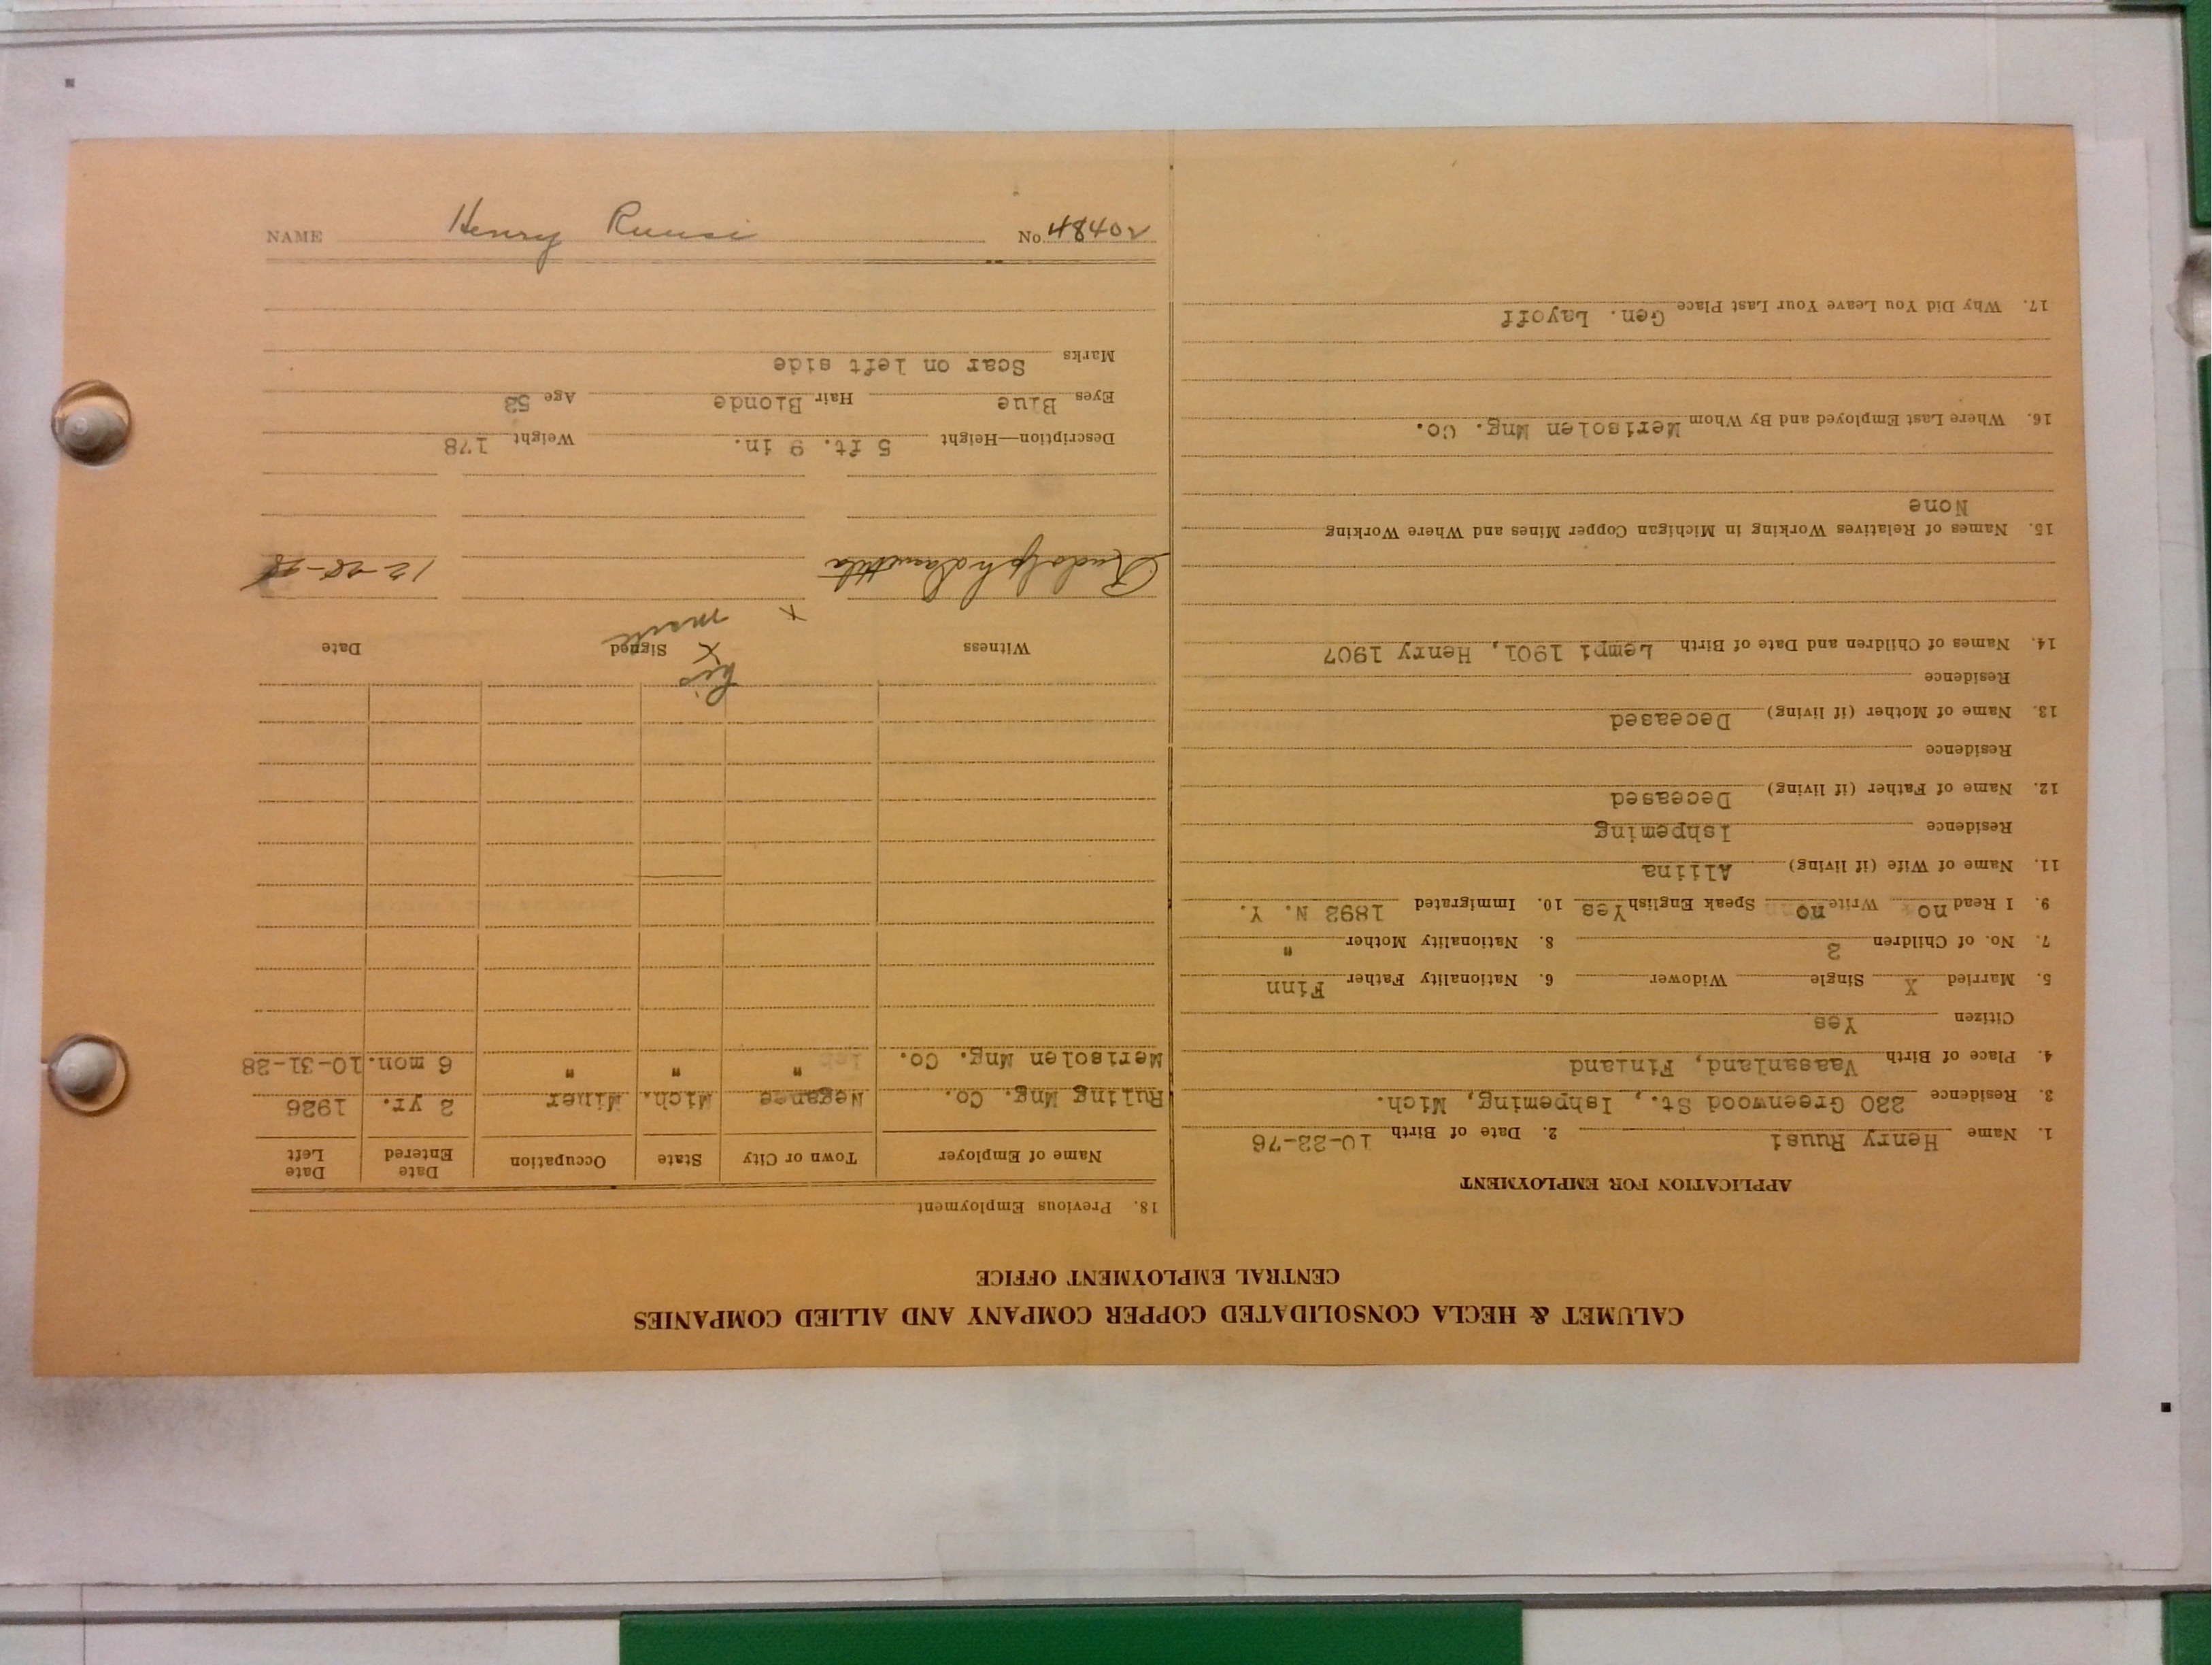 CALUMET & HECLA CONSOLIDATED COPPER COMPANY AND ALLIED COMPANIES
CENTRAL EMPLOYMENT OFFICE
APPLICATION FOR EMPLOYMENT
1. Name Henry Ruusi 2. Date of Birth 10-22-76
3. Residence 220 Greenwood St., Ishpeming, Mich.
4. Place of Birth Vaasanland, Finland
Citizen Yes
5. Married X Single Widower 6. Nationality Father Finn
7. No. of Children 2 8. Nationality Mother "
9. I Read no Write no Speak English Yes 10. Immigrated 1892 N. Y.
11. Name of Wife (if living) Aliina
Residence Ishpeming
12. Name of Father (if living) Deceased
Residence
13. Name of Mother (if living) Deceased
Residence
14. Names of Children and Date of Birth Lempi 1901, Henry 1907
15. Names of Relatives Working in Michigan Copper Mines and Where Working
None
16. Where Last Employed and By Whom Merisolen Mng. Co.
17. Why Did You Leave Your Last Place Gen. Layoff
18. Previous Employment
Name of Employer Town or City State Occupation Date Entered Date Left
Ruling Mng. Co. Neganee Mich. Miner 2 yr. 1926
Merisolen Mng. Co. " " " 6 mon. 10-31-28
his
X
mark
Witness Signed Date
Rudolph X 12-28-28
Description—Height 5 ft. 9 in. Weight 178
Eyes Blue Hair Blonde Age 52
Marks Scar on left side
NAME Henry Ruusi No 48402